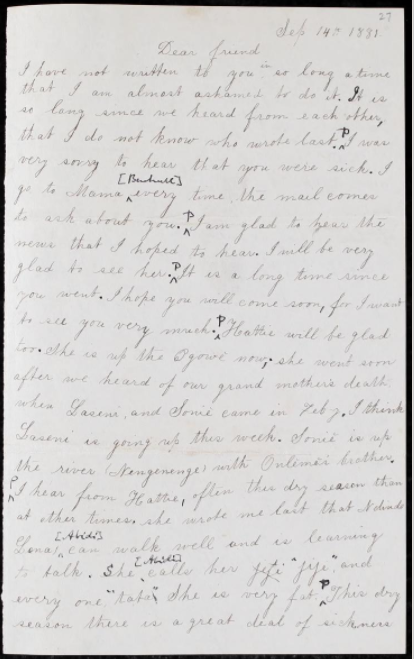 27
Sep 14th 1881.
Dear friend
I have not written to you so long a time
that I am almost ashamed to do it. It is
so long since we heard from each other,
that I do not know who wrote last. P I was
very sorry to hear that you were sick. I
[Bushnell]
go to Mama, every time the mail comes
to ask about you. P I am glad to hear the
news that I hoped to hear. I will be very
glad to see her. P It is a long time since
you went. I hope you will come soon, for I want
to see you very much. P Hattie will be glad
too. She is up the Ogowe now; she went soon
after we heard of our grand mother's death
when Laseni, and Sonie came in Feb'y. I think
Laseni is going up this week. Sonie is up
the river (Nengenenge) with brother.
P I hear from Hattie, often this dry season than
at other times. she wrote me last that
[Abili]
can walk well and is learning
[Abili]
to talk. She calls her "jije", and
every one, "tata". She is very fat. P This dry
season there is a great deal of sickness